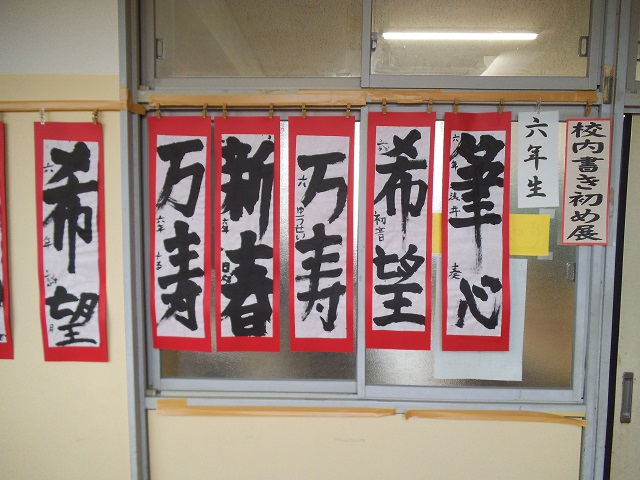 校内書き初め展
六年生
筆心
六年 浅井
希望
六年 初音
万寿
六 ゆうせい
新春
六年
万寿
六年
希望
六年